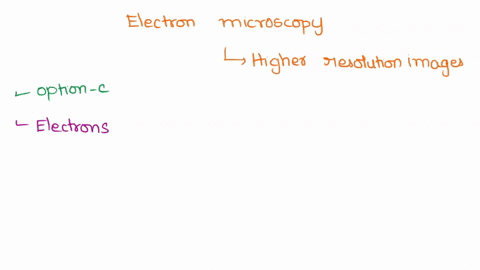 Electron microscopy
↳ Higher resolution images
← option-c
← Electrons